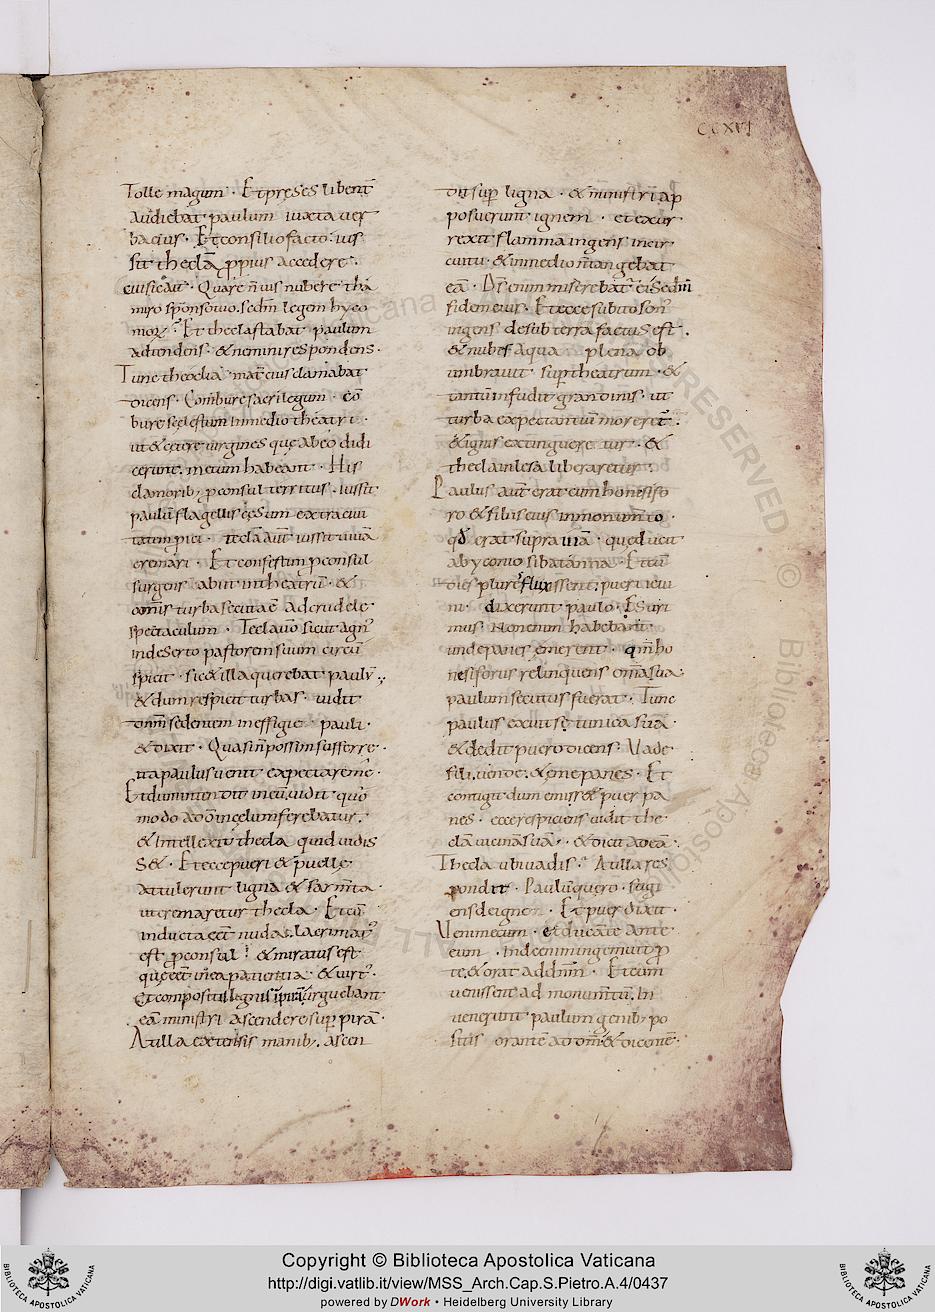 CCXVI
Tolle magum · Et preses libent̄
Audiebat paulum iuxta uer
ba eius · Et consilio facto · ius
sit theclā ꝓpius accedere ·
Quare n̄ uis nubere
legem
Et thecla stabat paulum
adtendens · & nemini respondens ·
Tunc theoclia mat̄ eius clamabat
dicens · Combure sacrilegum · cō
bure scelestum in medio theatri ·
ut & cetere uirgines que ab eo didi
cerunt · metum habeant · His
clamorib; ꝓconsul territus · iussit
paulū flagellis cesum extra ciui
tatem
cremari · Et confestim ꝓconsul
surgens abiit in theatrū · &
omnis turba secuta ē ad crudele
spectaculum · sicut agn᷒
in deserto pastorem suum circū
spicit · sic & illa querebat paulū
& dum respicit turbas · uidit
dom̄ sedentem in effigie pauli ·
& dixit · Quasi n̄ possim sufferre ·
ita paulus uenit expectare me ·
Et dum uidit quo
modo ad celum ferebatur ·
& intellexit thecla quid uidis
s& · Et ecce pueri & puelle
attulerunt ligna & sarm̄ta ·
ut cremaretur thecla · Et cū
inducta eēt nuda · lacrimat᷒
est ꝓconsul · & miratus est
que eēt in ea patientia · & uirt᷒ ·
Et compositis lignis urguebant
eā ministri ascendere sup̄ pirā ·
At illa extensis manib; · ascen
dit sup̄ ligna · & ministri ap
posuerunt ignem · et exur
rexit flamma ingens in cir
cuitu · & in medio n̄ tangebat
eā · D̄s enim miserebat᷒ ei sedm̄
fidem eius · Et ecce subito son᷒
ingens de sub terra factus est ·
& nubes aqua plena ob
umbrauit sup̄ theatrum · &
tantū infudit grandinis · ut
turba expectantiū moreret᷒ ·
& ignis extinguere tur · &
thecla inlesa liberaretur ·
Paulus aut̄ erat cum honesifo
ro & filiis eius in monum̄to ·
qđ erat supra uiā · que ducit
ab yconio Et cū
dies plures fluxissent · pueri ieiu
ni · dixerunt paulo · Esuri
mus · Non enim habebant
unde panes emerent · qm̄ ho
nesiforus relinquens om̄a sua
paulum secutus fuerat · Tunc
paulus exuit se tunica suā ·
& dedit puero dicens · Vade
fili, uende, & eme panes · Et
contigit dum emiss& puer pa
nes · ecce respiciens uidit the
clā uicinā suā · & dicit ad eā ·
Thecla ubi uadis · At illa res
pondit · Paulū quero · fugi
ens de igne · Et puer dixit ·
Veni mecum · et ducā te ante
eum · Indecinm ingemuit ꝓ
te, & orat ad dn̄m · Et cum
uenissent ad monum̄tū · In
uenerunt paulum genib; po
sitis orantē ad dom̄ & dicentē ·
Copyright © Biblioteca Apostolica Vaticana
http://digi.vatlib.it/view/MSS_Arch.Cap.S.Pietro.A.4/0437
powered by DWork • Heidelberg University Library
BIBLIOTECA APOSTOLICA VATICANA
BIBLIOTECA APOSTOLICA VATICANA